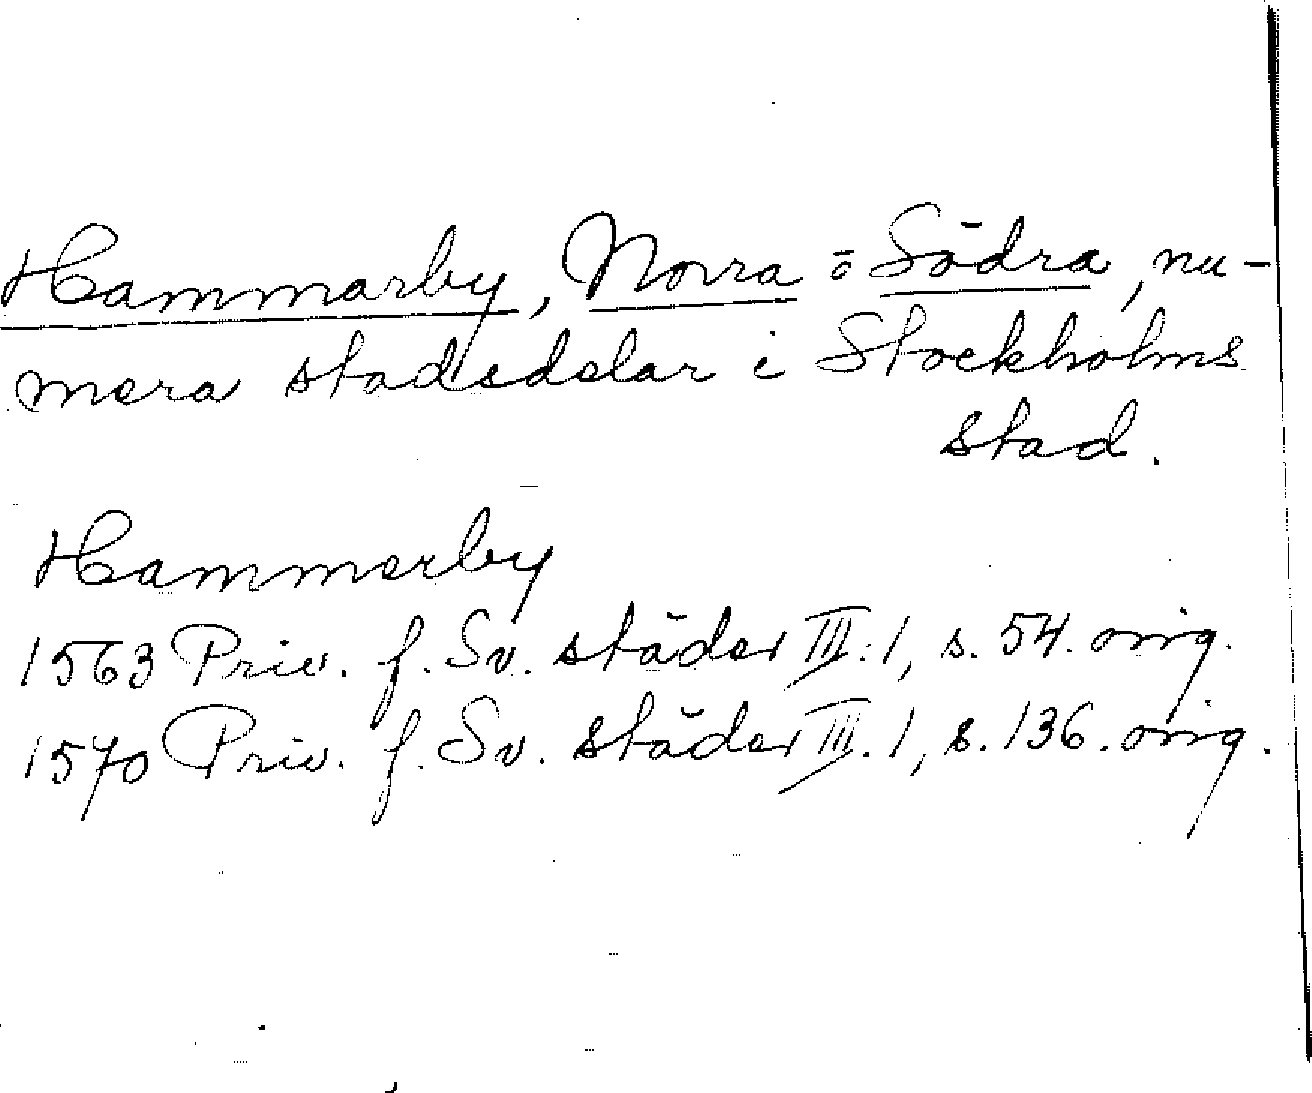 Hammarby, Norra o Södra, nu-
mera stadsdelar i Stockholms
stad.
Hammerby
1563 Priv. f. Sv. städer III:1, s. 54. orig.
1570 Priv. f. Sv. städer III.1, s. 136. orig.